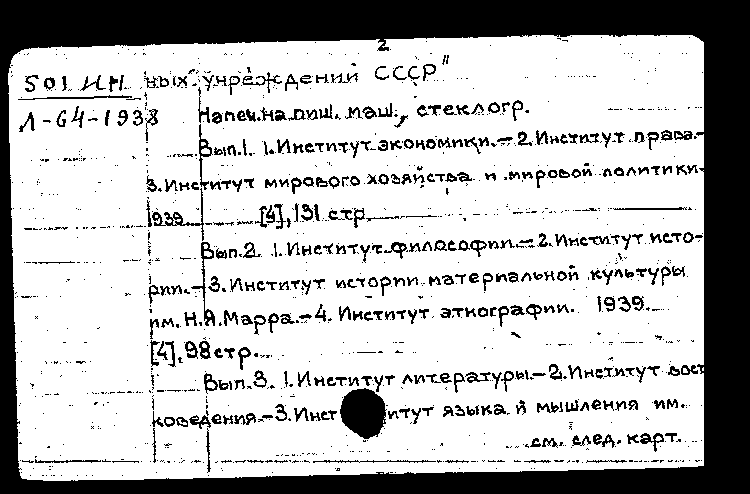 2
501 ИН ных учреждений СССР"
Л-64-1938 Напеч.на пиш. маш., стеклогр.
Вып.1. 1.Институт экономики.-2.Институт права.-
3.Институт мирового хозяйства и мировой политики.
1939. [4], 131 стр.
Вып.2. 1.Институт философии.-2.Институт исто-
рии.-3.Институт истории материальной культуры
им. Н.Я.Марра.-4. Институт этнографии. 1939.
[4], 98 стр.
Вып.3. 1.Институт литературы.-2.Институт вост
коведения.-3.Инст итут языка и мышления им.
см. след. карт.